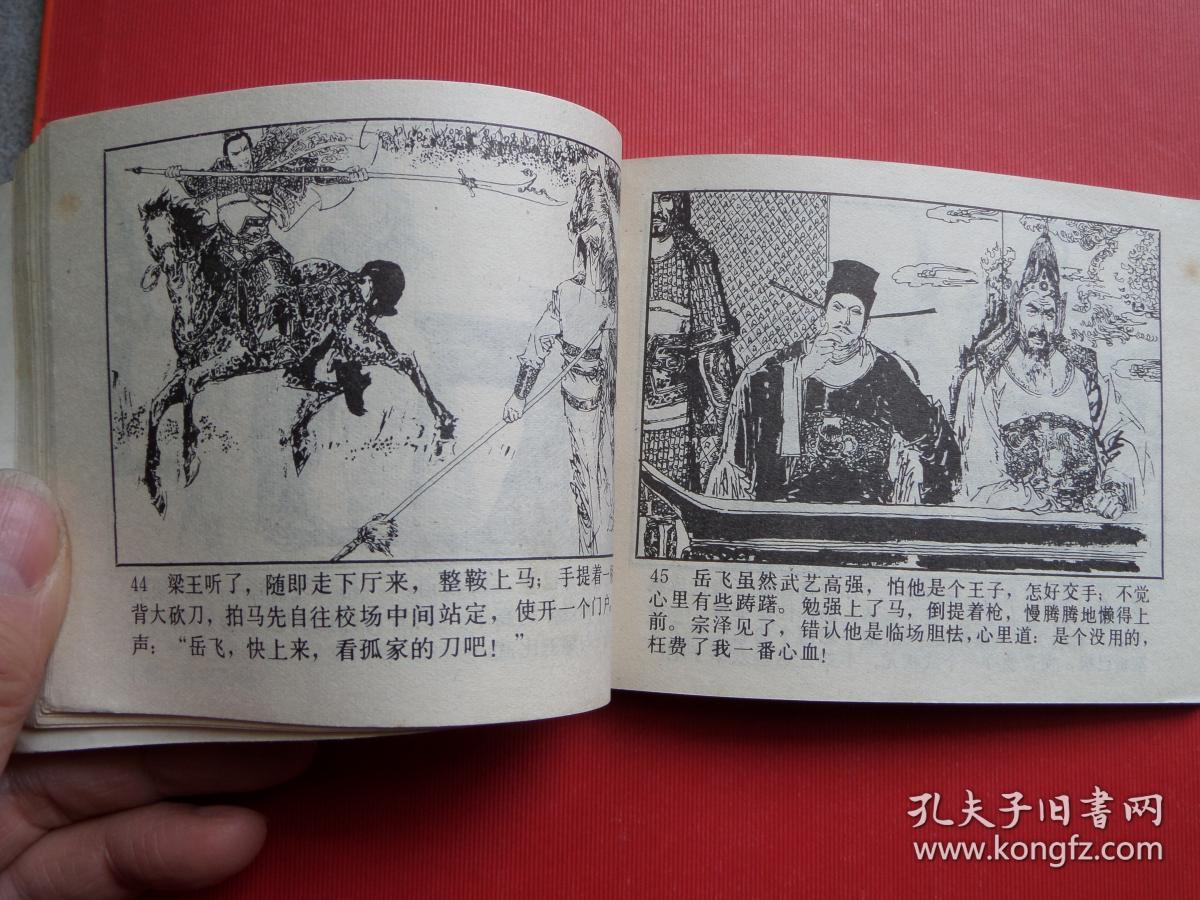 44 梁王听了，随即走下厅来，整鞍上马；手提着一
背大砍刀，拍马先自往校场中间站定，使开一个门户
声：“岳飞，快上来，看孤家的刀吧！”
45 岳飞虽然武艺高强，怕他是个王子，怎好交手；不觉
心里有些踌躇。勉强上了马，倒提着枪，慢腾腾地懒得上
前。宗泽见了，错认他是临场胆怯，心里道：是个没用的，
枉费了我一番心血！
孔夫子旧書网
www.kongfz.com